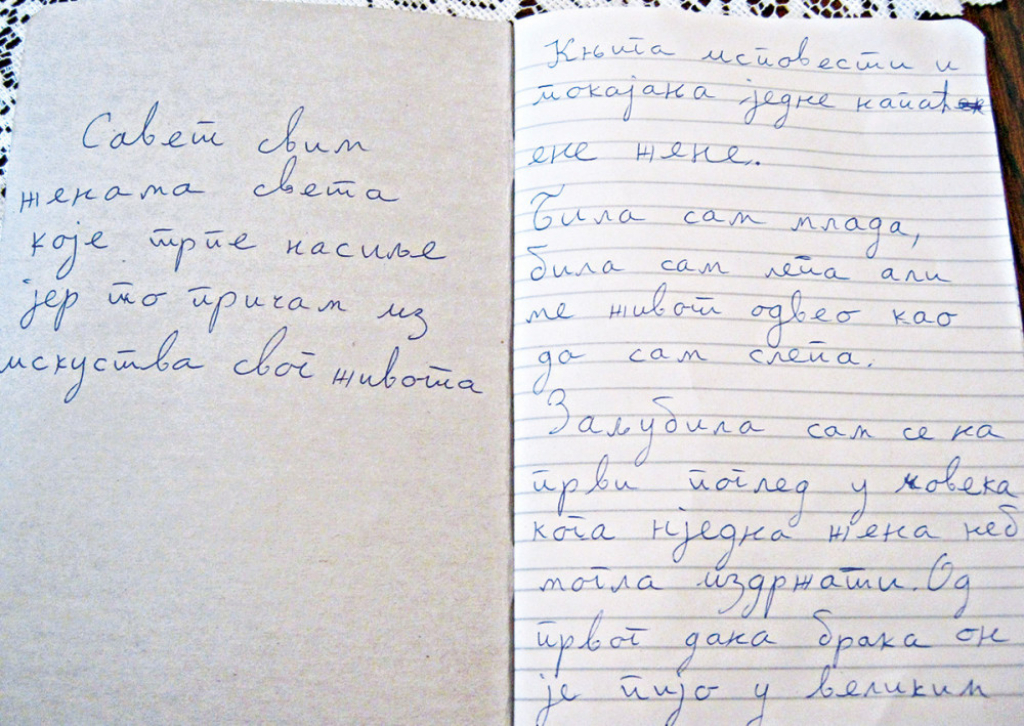 Савет свим
женама света
које трпе насиље
јер то причам из
искуства свог живота
Књига исповести и
покајања једне напаћ
ене жене.
Била сам млада,
била сам лепа али
ме живот одвео као
да сам слепа.
Заљубила сам се на
први поглед у човека
кога нједна жена неб
могла издржати. Од
првог дана брака он
је пијо у великим